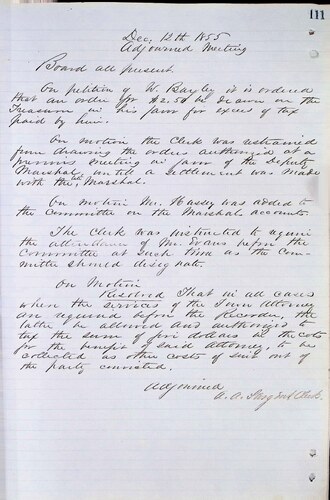 111
Dec. 12th 1855
Adjourned Meeting
Board all present.
On petition of W. Bayley it is ordered
that an order for $2.50 be drawn on the
Treasurer in his favor for excess of tax
paid by him.
On motion the Clerk was restrained
from drawing the orders authorized at a
previous meeting in favor of the Deputy
Marshal, until a settlement was made
with the late Marshal.
On motion Mr. was added to
the Committee on the Marshals accounts.
The Clerk was instructed to require
the attendance of Mr. Evans before the
Committee at such time as the Com-
mittee should designate.
On Motion
Resolved That in all cases
when the services of the Town Attorney
are required before the Recorder, the
latter be allowed and authorized to
tax the sum of five dollars in the costs
for the benefit of said Attorney to be
collected as other costs of suit out of
the party convicted.
Adjourned
A. A. Clerk.